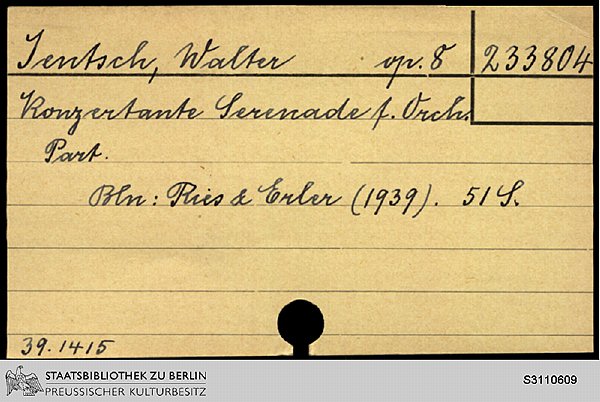 Jentsch, Walter op. 8 233804
Konzertante Serenade f. Orch.
Part.
Bln: Ries & Erler (1939). 51 S.
39.1415
STAATSBIBLIOTHEK ZU BERLIN
PREUSSISCHER KULTURBESITZ
S3110609